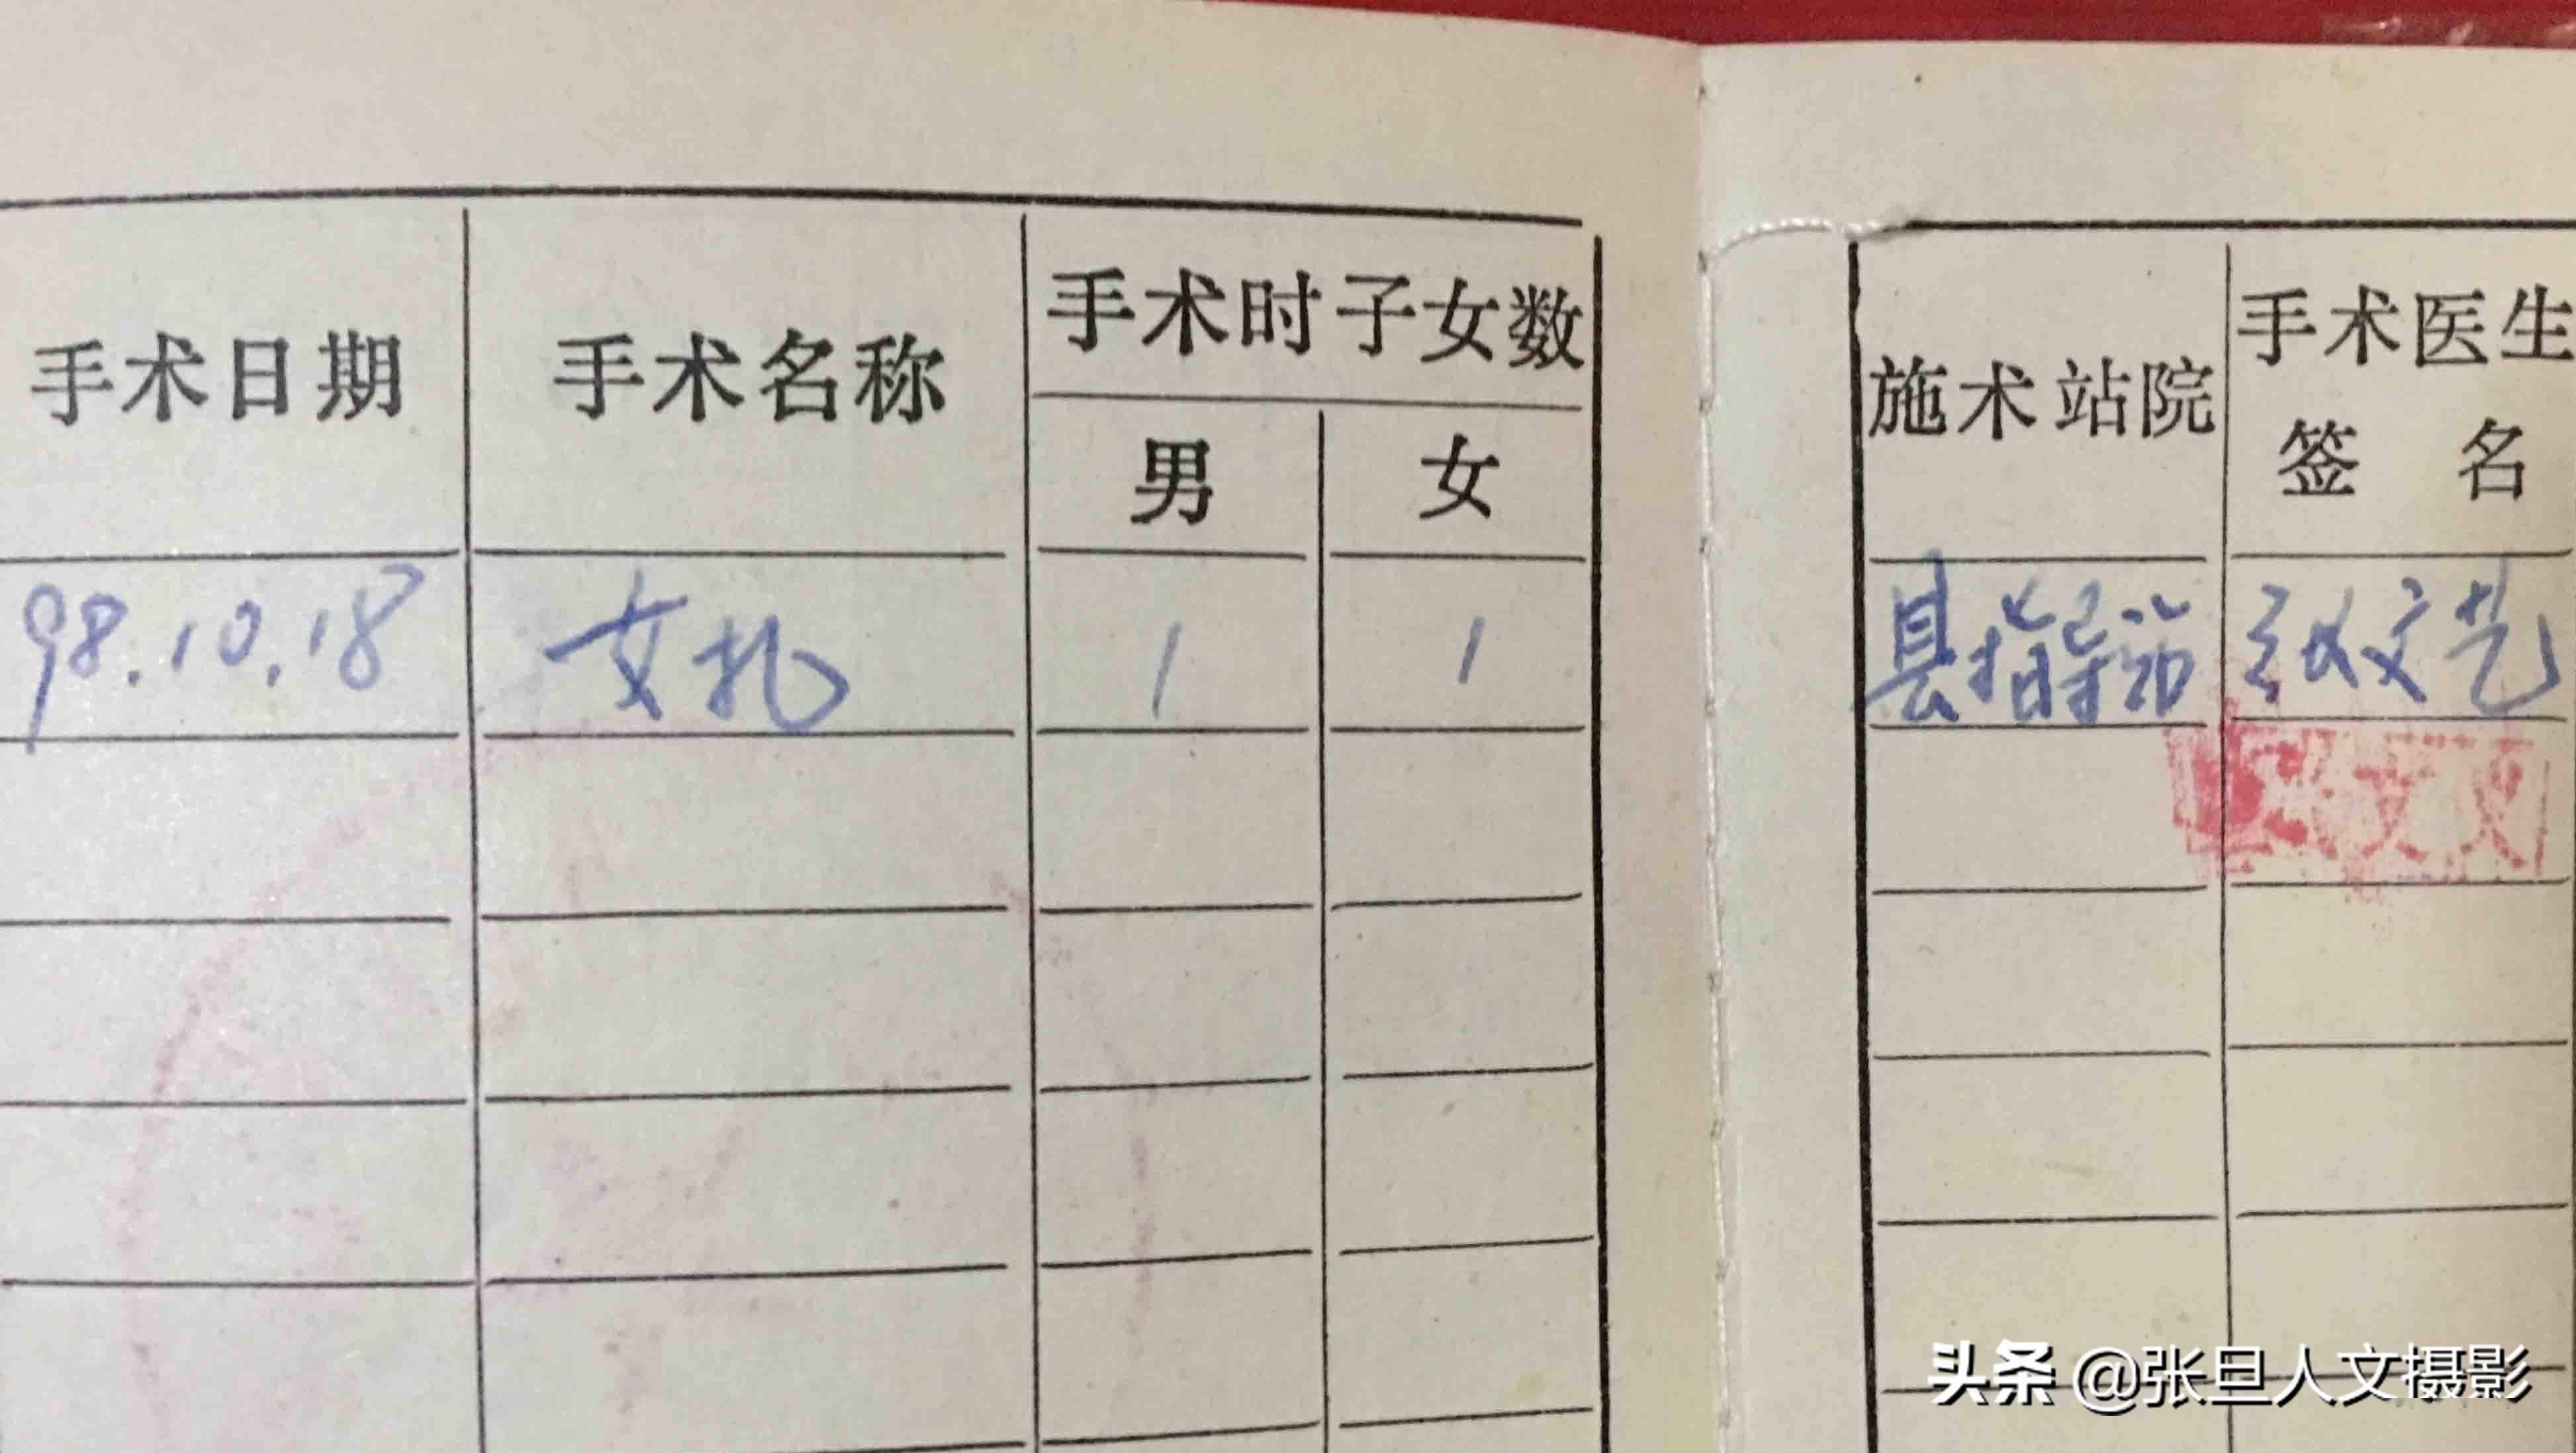 手术日期 手术名称 手术时子女数 施术站院 手术医生签名
男 女
98.10.18 女扎 1 1 县指导站 张文艺
头条 @张旦人文摄影